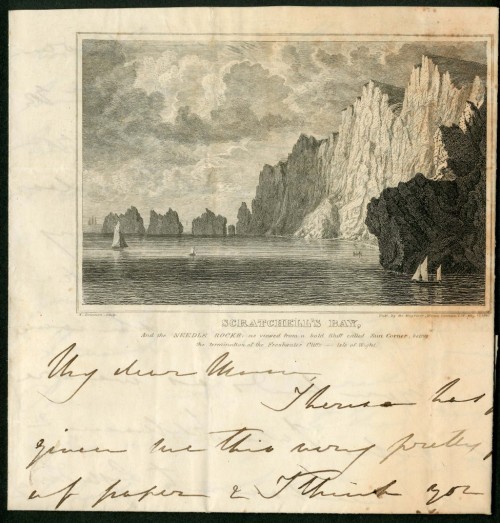 SCRATCHELL'S BAY,
And the NEEDLE ROCKS; as viewed from a bold Cliff called Sun Corner, being
the termination of the Freshwater Cliffs — Isle of Wight.
My dear
Theresa has
given me this very pretty
of paper & I think you